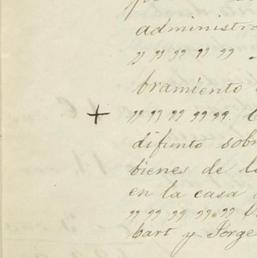 administra
" " " " " "
bramiento
+ " " " " " "
difunto sobr
bienes de l
en la casa
" " " " " "
bart y Jorge